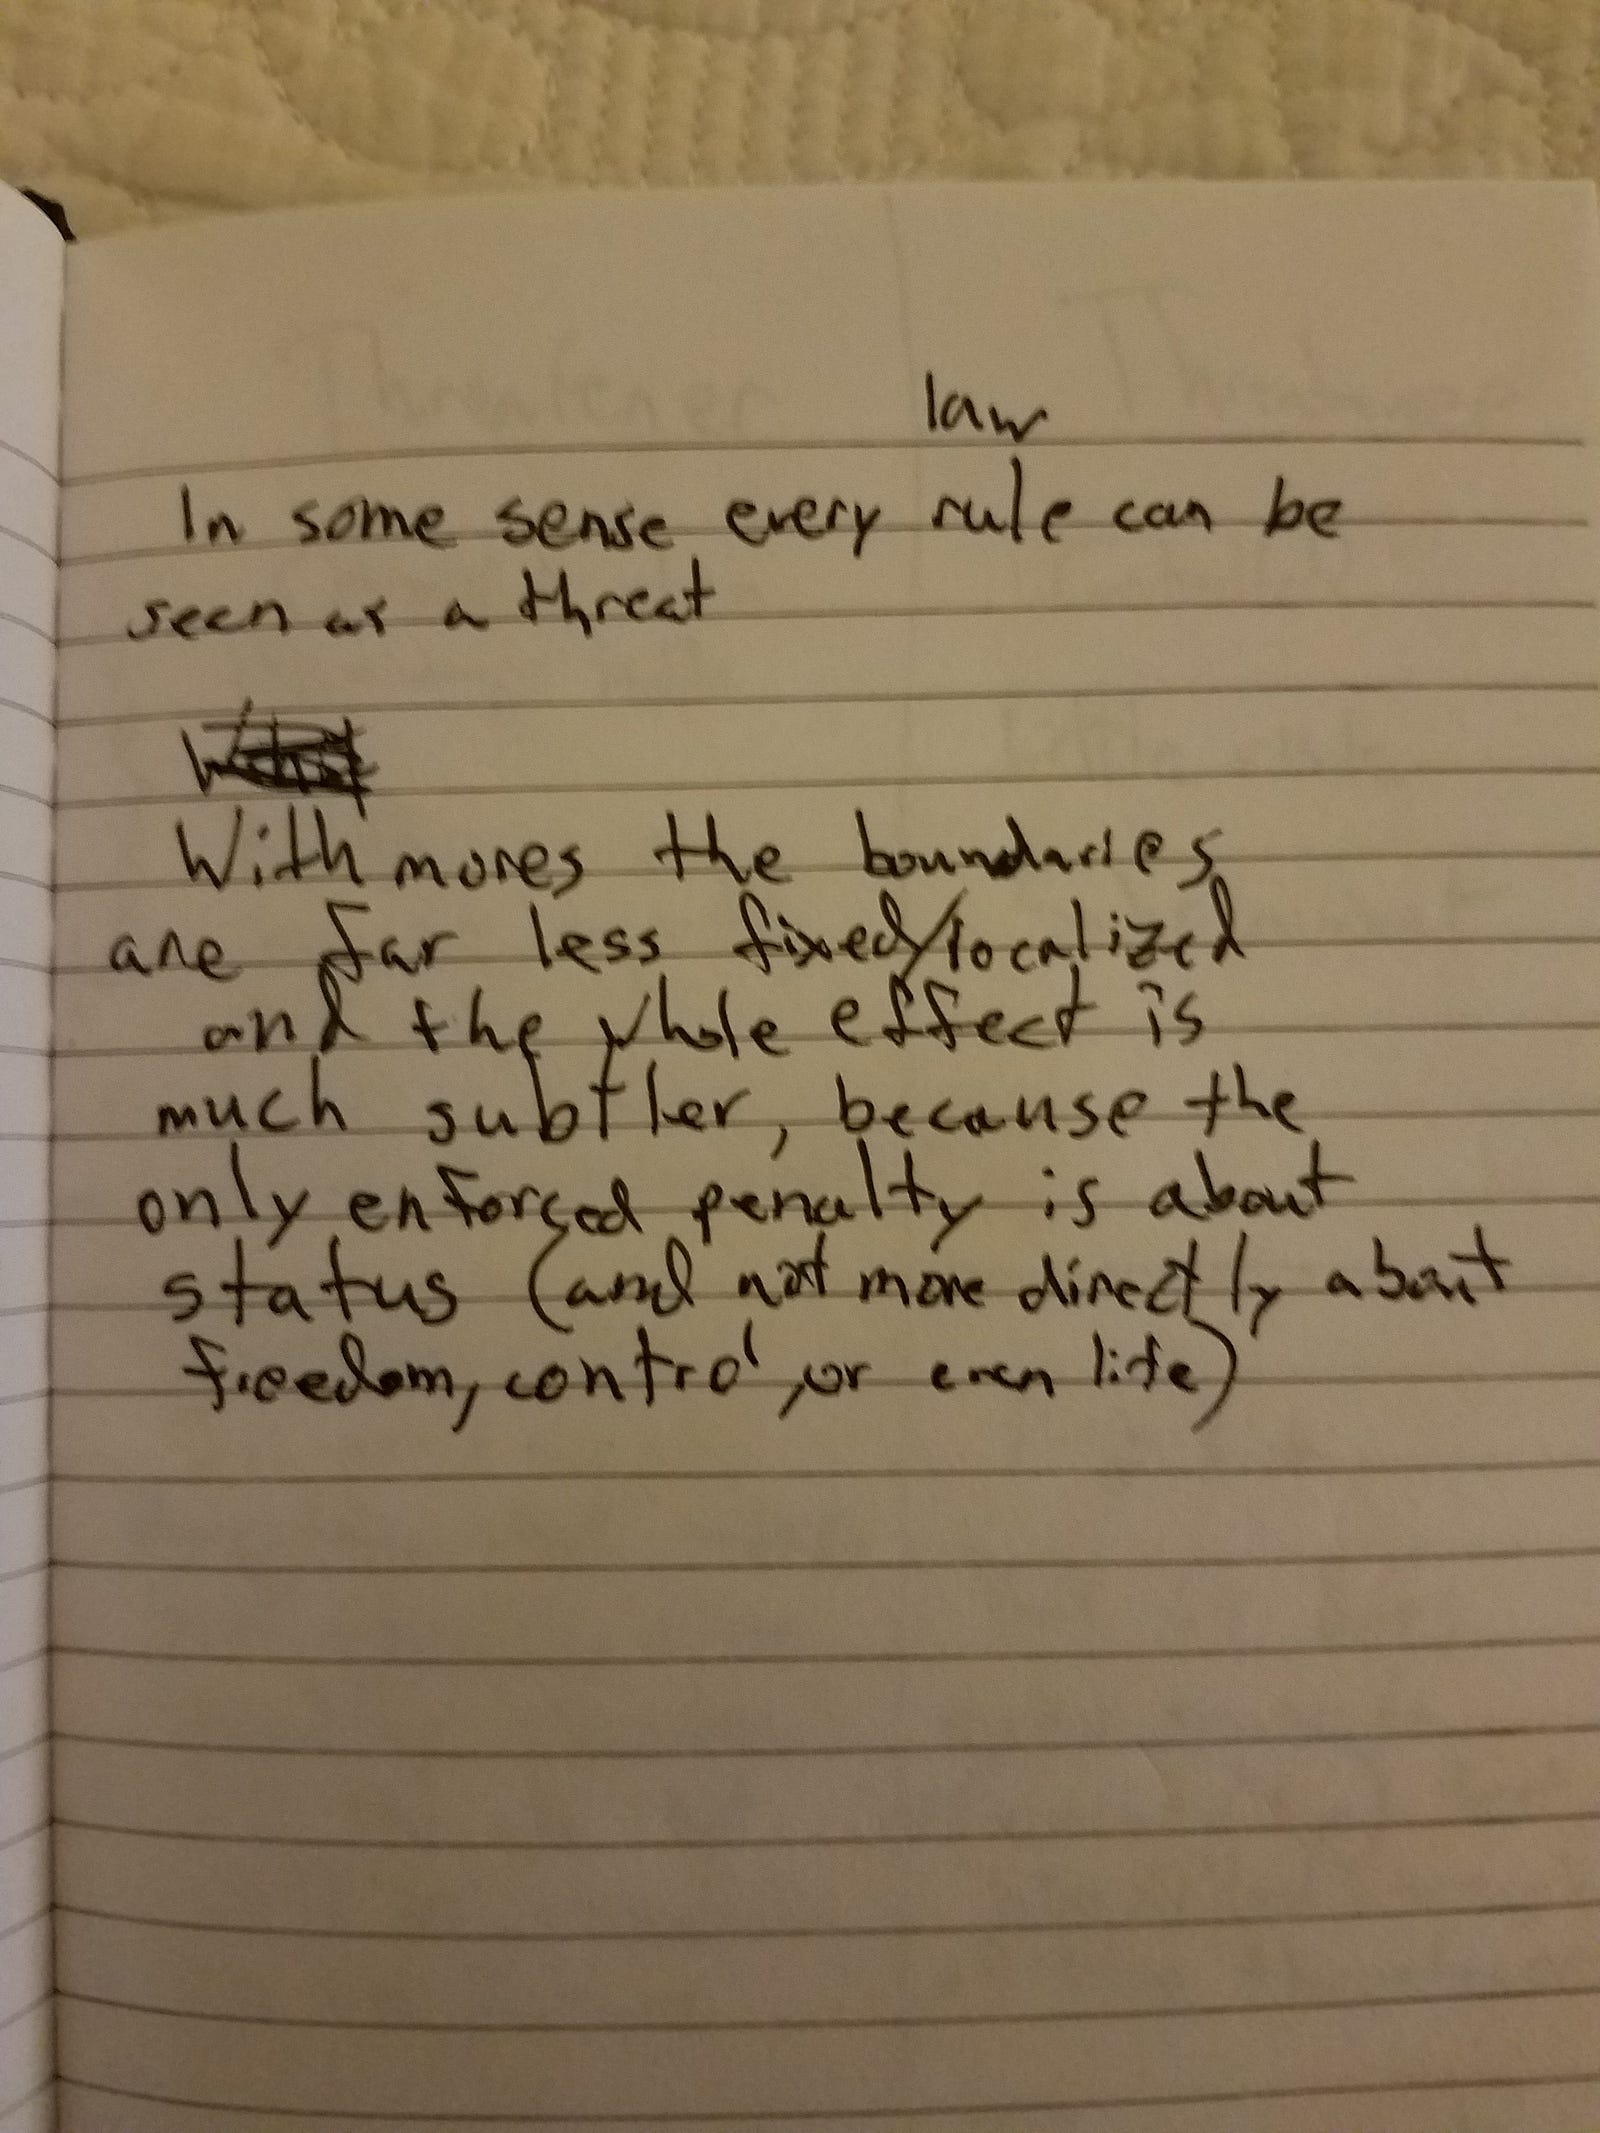 law
In some sense every rule can be
seen as a threat
With mores the boundaries
are far less fixed/localized
and the whole effect is
much subtler, because the
only enforced penalty is about
status (and not more directly about
freedom, control, or even life)